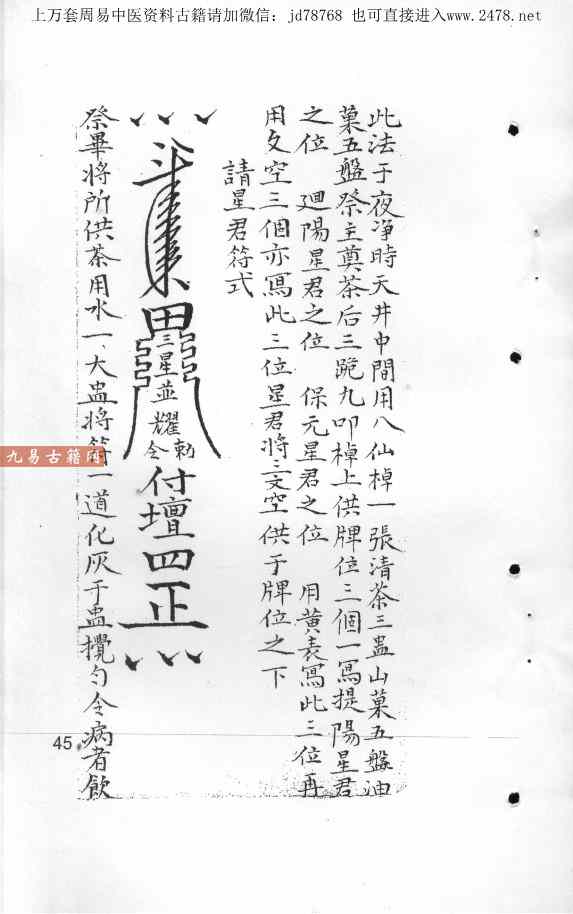 上万套周易中医资料古籍请加微信：jd78768 也可直接进入www.2478.net
此法于夜净时天井中間用八仙棹一張清茶三盅山菓五盤油
菓五盤祭主奠茶后三跪九叩棹上供牌位三個一寫提陽星君
之位 廻陽星君之位 保元星君之位 用黃表寫此三位再
用文空三個亦寫此三位星君将三文空供于牌位之下
請星君符式
三星並耀
勅令
付壇四正
祭畢将所供茶用水一大盅将符一道化灰于盅攪勻令病者飲
九易古籍网
45